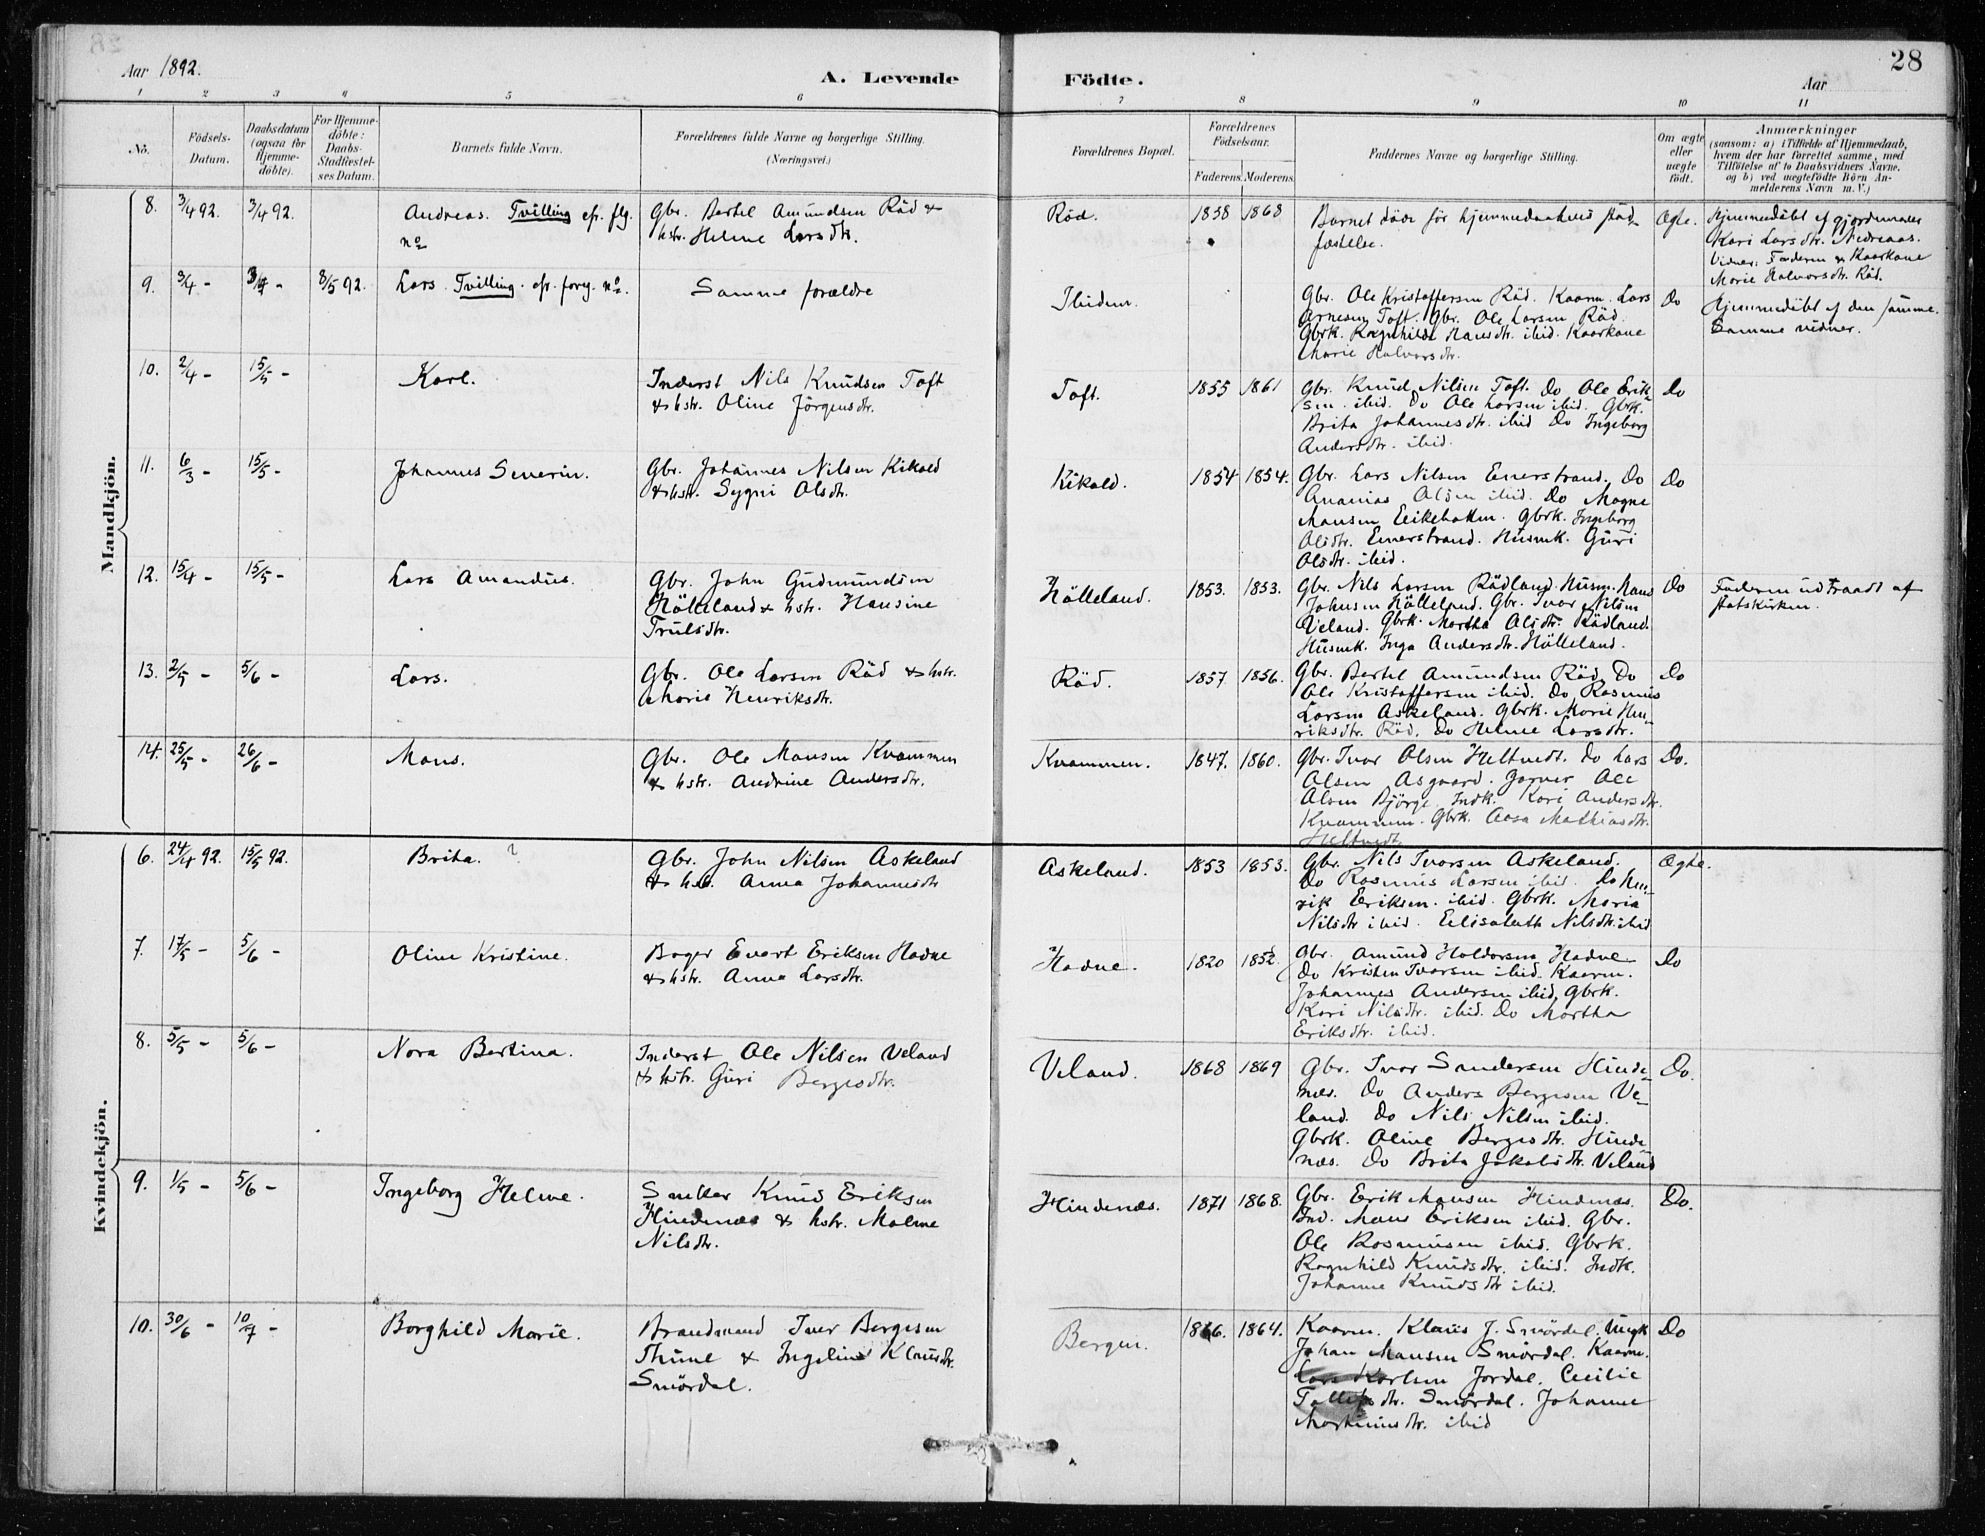 28
Aar 1892.
A. Levende
Födte.
Aar
1 2 3 4 5 6 7 8 9 10 11
No.
Födsels-
Datum.
Daabsdatum
(ogsaa for
Hjemme-
döbte).
For Hjemme-
döbte:
Daabs-
Stadfæstel-
ses Datum.
Barnets fulde Navn.
Forældrenes fulde Navne og borgerlige Stilling.
(Næringsvei.)
Forældrenes Bopæl.
Forældrenes
Födselsaar.
Faderens. Moderens.
Faddernes Navne og borgerlige Stilling.
Om ægte
eller
uægte
födt.
Anmærkninger
(saasom: a) i Tilfælde af Hjemmedaab,
hvem der har forrettet samme, med
Tilföielse af to Daabsvidners Navne,
og b) ved uægtefödte Börn An-
melderens Navn m. V.)
Mandkjön.
8. 3/4 92. 3/4 92.
Andreas. Tvilling cfr. flg.
no
Gbr. Bertel Amundsen Röd &
hstr. Helene Larsdtr.
Röd.
1858 1868
Barnet döde för hjemmedaabens stad-
fæstelse.
Ægte.
Hjemmedöbt af gjordemoder
Kari Larsdtr. Nedreaas.
Vidner: Faderen & Kaarkone
Marie Halvorsdtr. Röd.
9. 3/4 - 3/4 - 8/5 92.
Lars. Tvilling. cfr. forrg. no.
Samme forældre
Ibidem.
Gbr. Ole Kristoffersen Röd. Kaarm. Lars
Arnesen Toft. Gbr. Ole Larsen Röd.
Gbrk. Ragnhilde Hansdtr. ibid. Kaarkone
Marie Halvorsdtr.
Do
Hjemmedöbt af den samme.
Samme vidner.
10. 2/4 - 15/5 -
Karl.
Inderst Nils Knudsen Toft
& hstr. Oline Jörgensdtr.
Toft.
1855 1861
Gbr. Knud Nilsen Toft. Do Ole Erik-
sen ibid. Do Ole Larsen ibid. Gbrk.
Brita Johannesdtr. ibid Do Ingeborg
Andersdtr. ibid.
Do
11. 6/3 - 15/5 -
Johannes Severin.
Gbr. Johannes Nilsen Kikald
& hstr. Sygni Olsdtr.
Kikald.
1854 1854.
Gbr. Lars Nilsen Emerstrand. Do
Ananias Olsen ibid. Do Mogne
Mansen Eikehatten. Gbrk. Ingeborg
Olsdtr. Emerstrand. Husmk. Guri
Olsdtr. ibid.
Do
12. 15/4 - 15/5 -
Lars Amandus.
Gbr. John Gudmundsen
Hölleland & hstr. Hansine
Trulsdtr.
Hölleland.
1853. 1853.
Gbr. Nils Larsen Rödland. Husm. Hans
Johnsen Hölleland. Gbr. Ivar Nilsen
Veland. Gbrk. Martha Olsdtr. Rödland.
Husmk. Inga Andersdtr. Hölleland.
Do
Faderen udtraadt af
statskirken.
13. 2/5 - 5/6 -
Lars.
Gbr. Ole Larsen Röd & hstr.
Marie Henriksdtr.
Röd.
1857 1856.
Gbr. Bertel Amundsen Röd. Do
Ole Kristoffersen ibid. Do Rasmus
Larsen Askeland. Gbrk. Marie Hen-
riksdtr. Röd. Do Helene Larsdtr.
Do
14. 25/5 - 26/6 -
Mons.
Gbr. Ole Monsen Kvammen
& hstr. Andrine Andersdtr.
Kvammen.
1847. 1860.
Gbr. Ivar Olsen Heltvedt. Do Lars
Olsen Asgaard. Garver Ole
Olsen Björge. Indk. Kari Andersdtr.
Kvammen. Gbrk. Aasa Mathiasdtr.
Heltvedt
Do.
Kvindekjön.
6. 24/4 92. 15/5 92.
Brita. ?
Gbr. John Nilsen Askeland
& hstr. Anna Johannesdtr
Askeland.
1853 1853.
Gbr. Nils Ivarsen Askeland.
Do Rasmus Larsen ibid. Do Hen-
rik Eriksen. ibid. Gbrk. Maria
Nilsdtr ibid. Elisabeth Nilsdtr. ibid
Ægte.
7. 17/5 - 5/6 -
Oline Kristine.
Bager Evert Eriksen Hadne
& hstr. Anna Larsdtr.
Hadne.
1820 1852.
Gbr. Amund Haldorsen Hadne
Do Kristen Ivarsen ibid. Kaarm.
Johannes Andersen ibid. Gbrk.
Kari Nilsdtr. ibid. Do Martha
Eriksdtr. ibid.
Do
8. 5/5 - 5/6 -
Nora Bertina.
Inderst Ole Nilsen Veland
& hstr. Guri Bergesdtr.
Veland.
1868 1869
Gbr. Ivar Sandersen Hinde-
næs. Do Anders Bergesen Ve-
land. Do Nils Nilsen ibid.
Gbrk. Oline Bergesdtr. Hinde-
næs. Do Brita Jakobsdtr. Veland
Do.
9. 1/5 - 5/6 -
Ingeborg Helene.
Snekker Knud Eriksen
Hindenæs & hstr. Malene
Nilsdtr.
Hindenæs.
1871 1868.
Gbr. Erik Monsen Hindenæs.
Ind. Mons Eriksen ibid. Gbr.
Ole Rasmusen ibid. Gbrk.
Ragnhild Knudsdtr. ibid. Indk.
Johanne Knudsdtr ibid.
Do.
10. 30/6 - 10/7 -
Borghild Marie.
Brandmand Iver Bergesen
Thune & Ingeline Klausdtr.
Smördal.
Bergen.
1866. 1864.
Kaarm. Klaus J. Smördal. Ungk
Johan Mansen Smördal. Kaarm.
Lars Karlsen Jordal. Cecilie
Tollefsdtr. Smördal. Johanne
Martinusdtr. ibid
Do